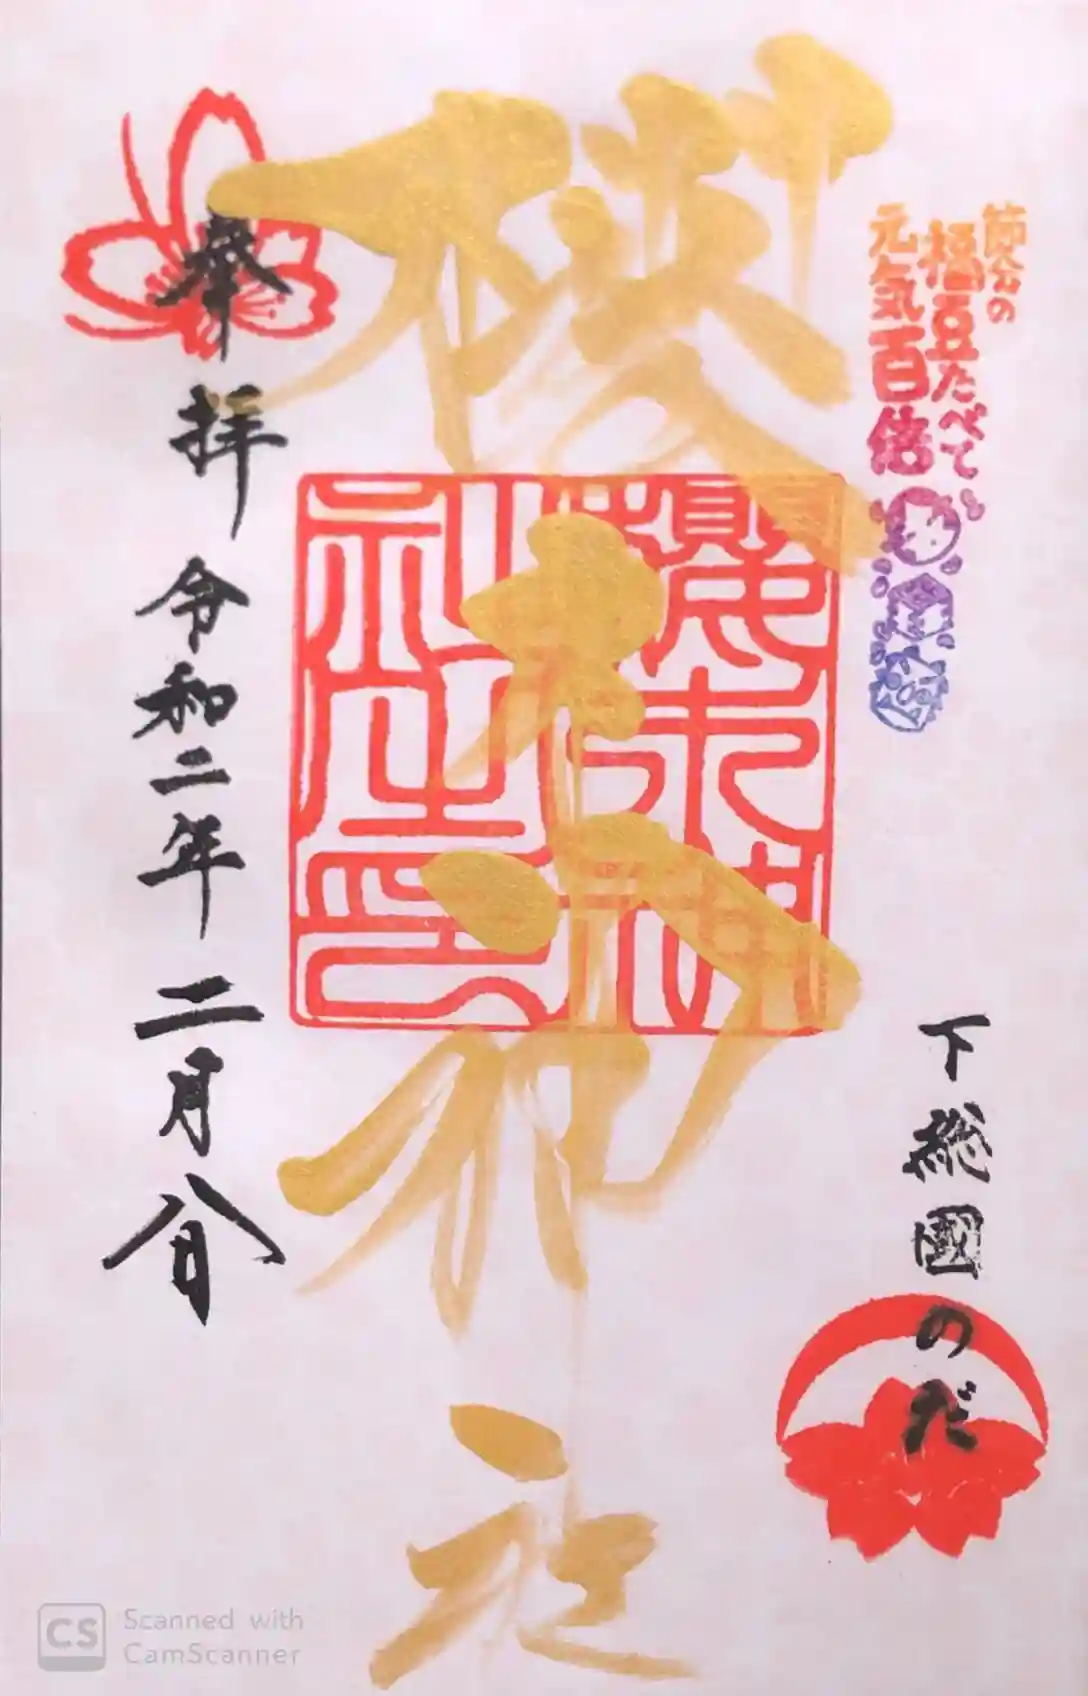 節分の
福豆たべて
元気百倍
下総國のだ
櫻木神社
奉拝
令和二年二月
CS Scanned with
CamScanner